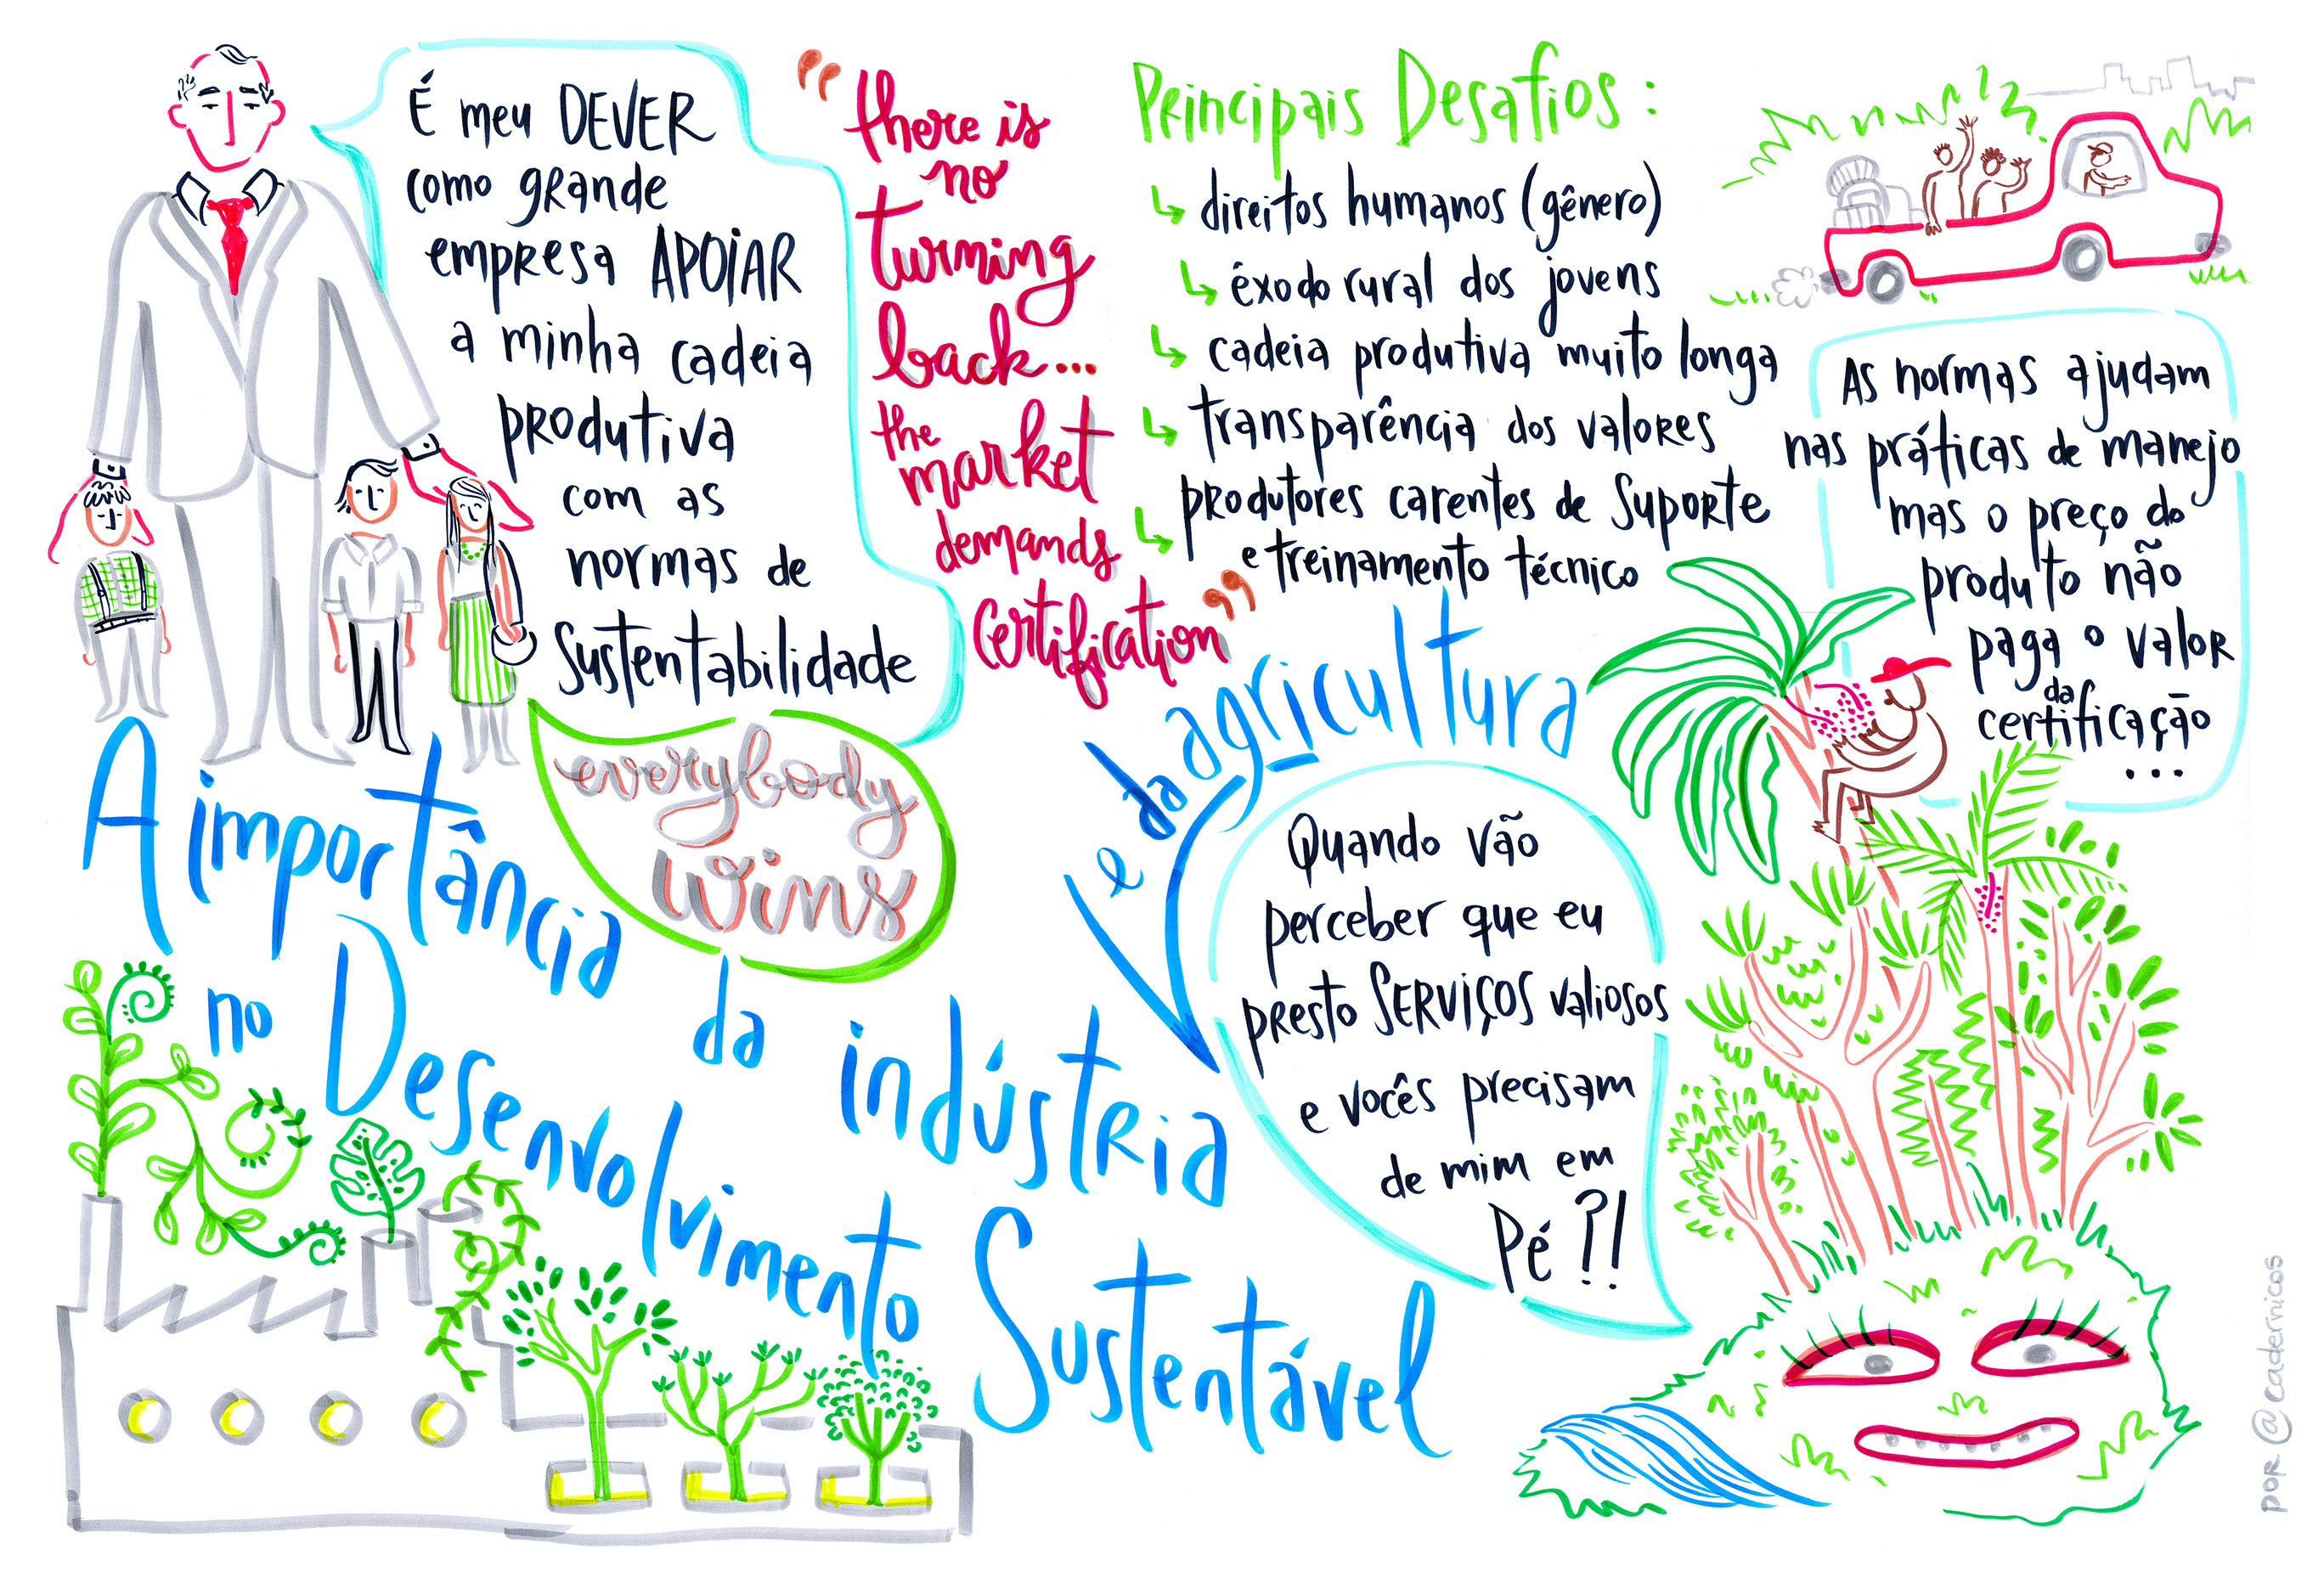 É meu DEVER
como grande
empresa APOIAR
a minha cadeia
produtiva
com as
normas de
Sustentabilidade
everybody
wins
“there is
no
turning
back...
the
market
demands
Certification”
Principais Desafios:
direitos humanos (gênero)
êxodo rural dos jovens
cadeia produtiva muito longa
transparência dos valores
produtores carentes de Suporte
e treinamento técnico
As normas ajudam
nas práticas de manejo
mas o preço do
produto não
paga o valor
da
certificação
...
A importância
da indústria
e da agricultura
no Desenvolvimento
Sustentável
Quando vão
perceber que eu
presto SERVIÇOS valiosos
e vocês precisam
de mim em
Pé?!
por @cadernicos